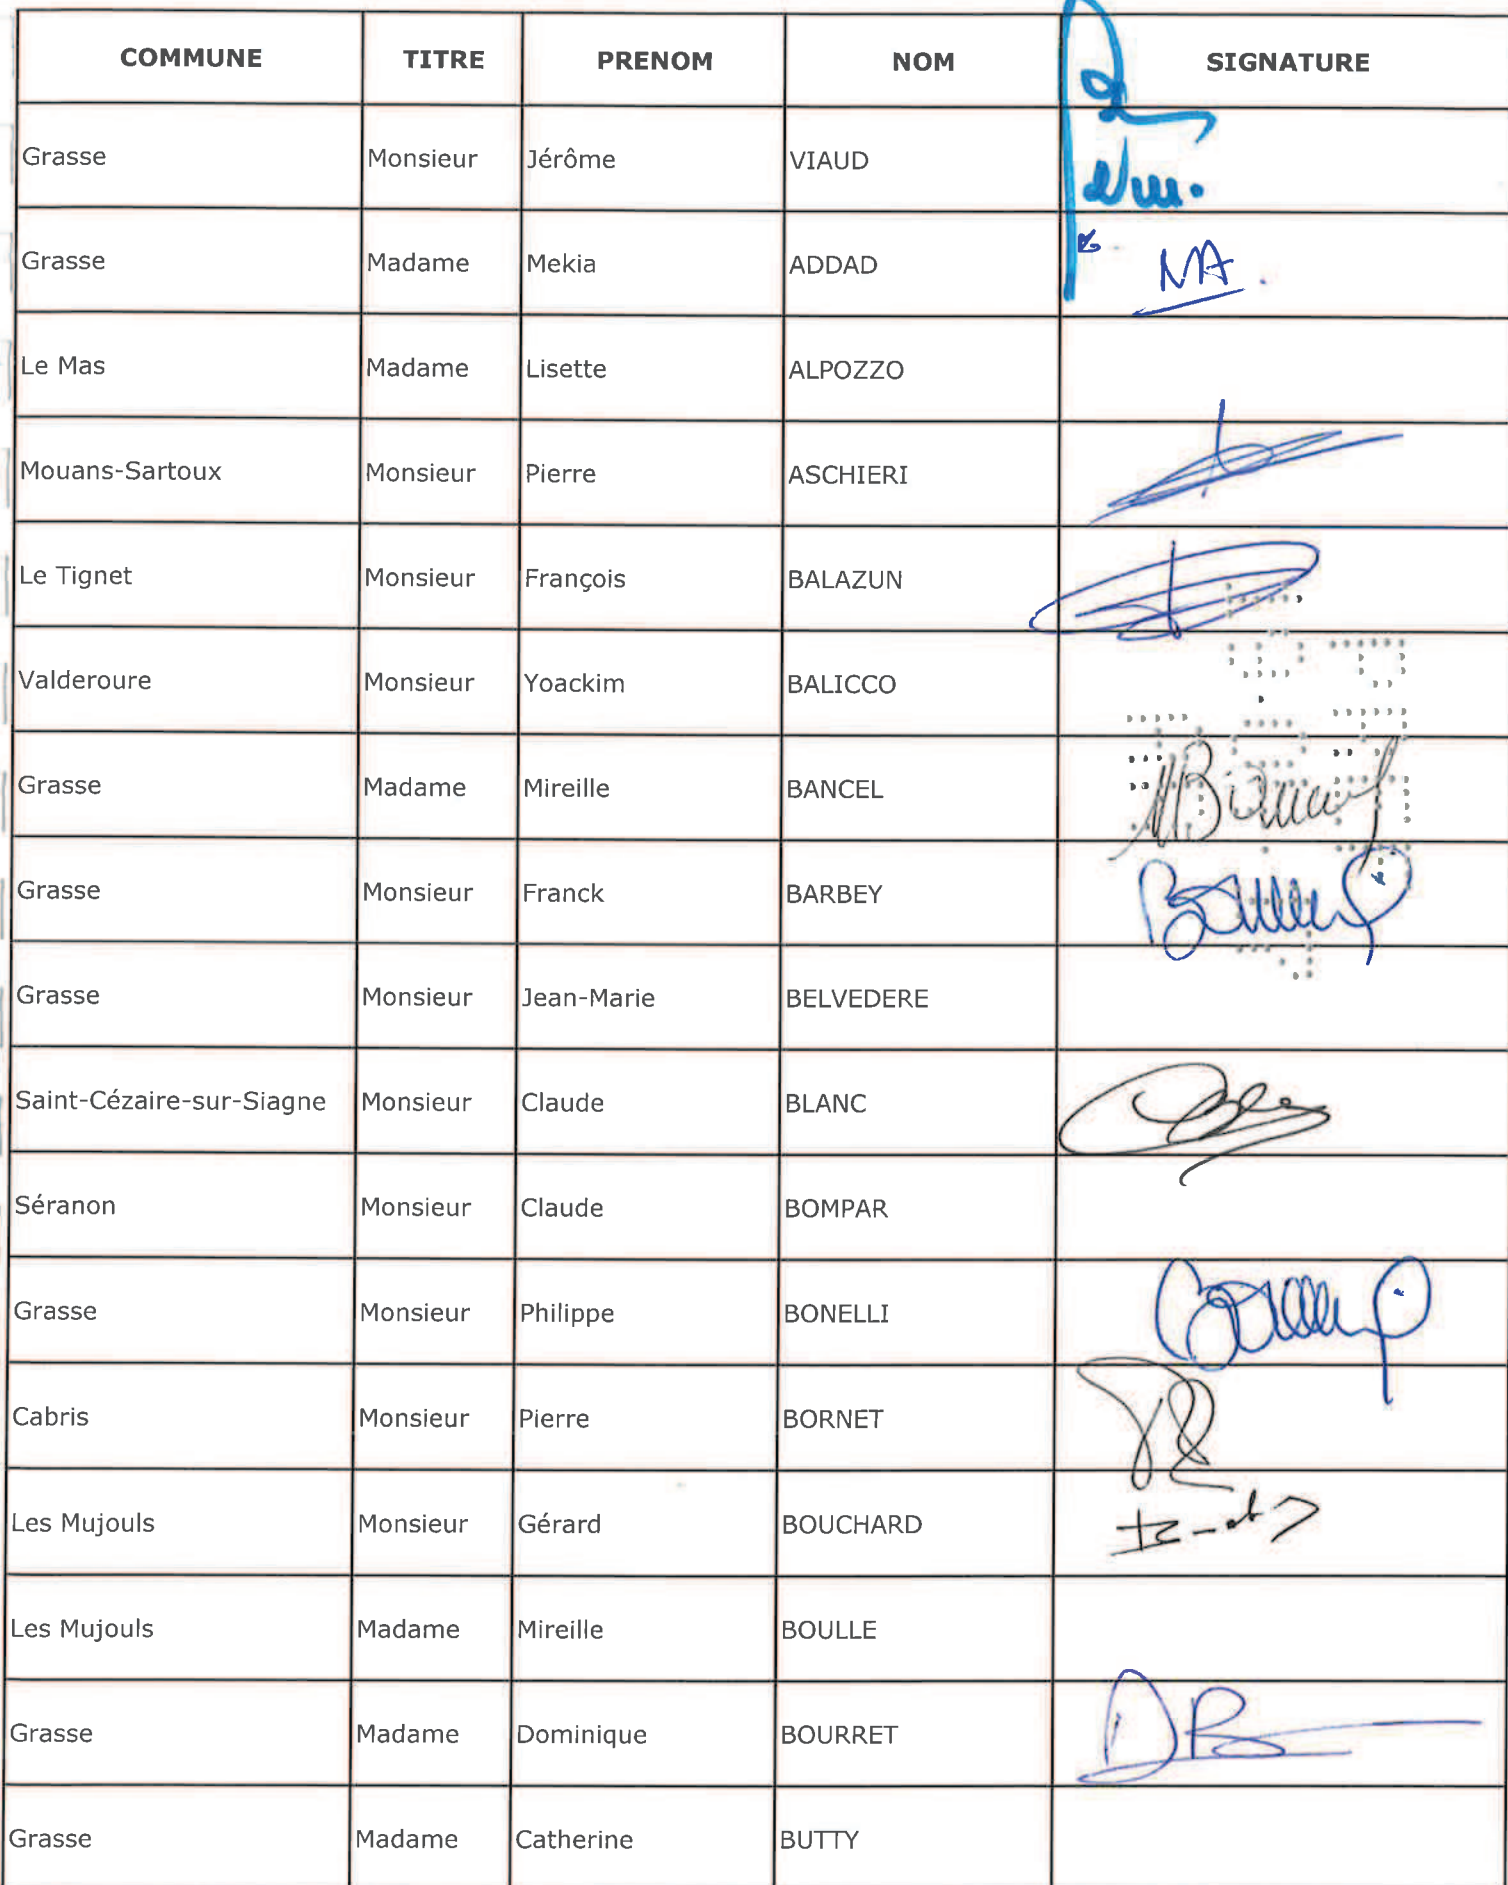 COMMUNE TITRE PRENOM NOM SIGNATURE
Grasse Monsieur Jérôme VIAUD
Grasse Madame Mekia ADDAD MA
Le Mas Madame Lisette ALPOZZO
Mouans-Sartoux Monsieur Pierre ASCHIERI
Le Tignet Monsieur François BALAZUN
Valderoure Monsieur Yoackim BALICCO
Grasse Madame Mireille BANCEL
Grasse Monsieur Franck BARBEY
Grasse Monsieur Jean-Marie BELVEDERE
Saint-Cézaire-sur-Siagne Monsieur Claude BLANC
Séranon Monsieur Claude BOMPAR
Grasse Monsieur Philippe BONELLI
Cabris Monsieur Pierre BORNET
Les Mujouls Monsieur Gérard BOUCHARD
Les Mujouls Madame Mireille BOULLE
Grasse Madame Dominique BOURRET DB
Grasse Madame Catherine BUTTY